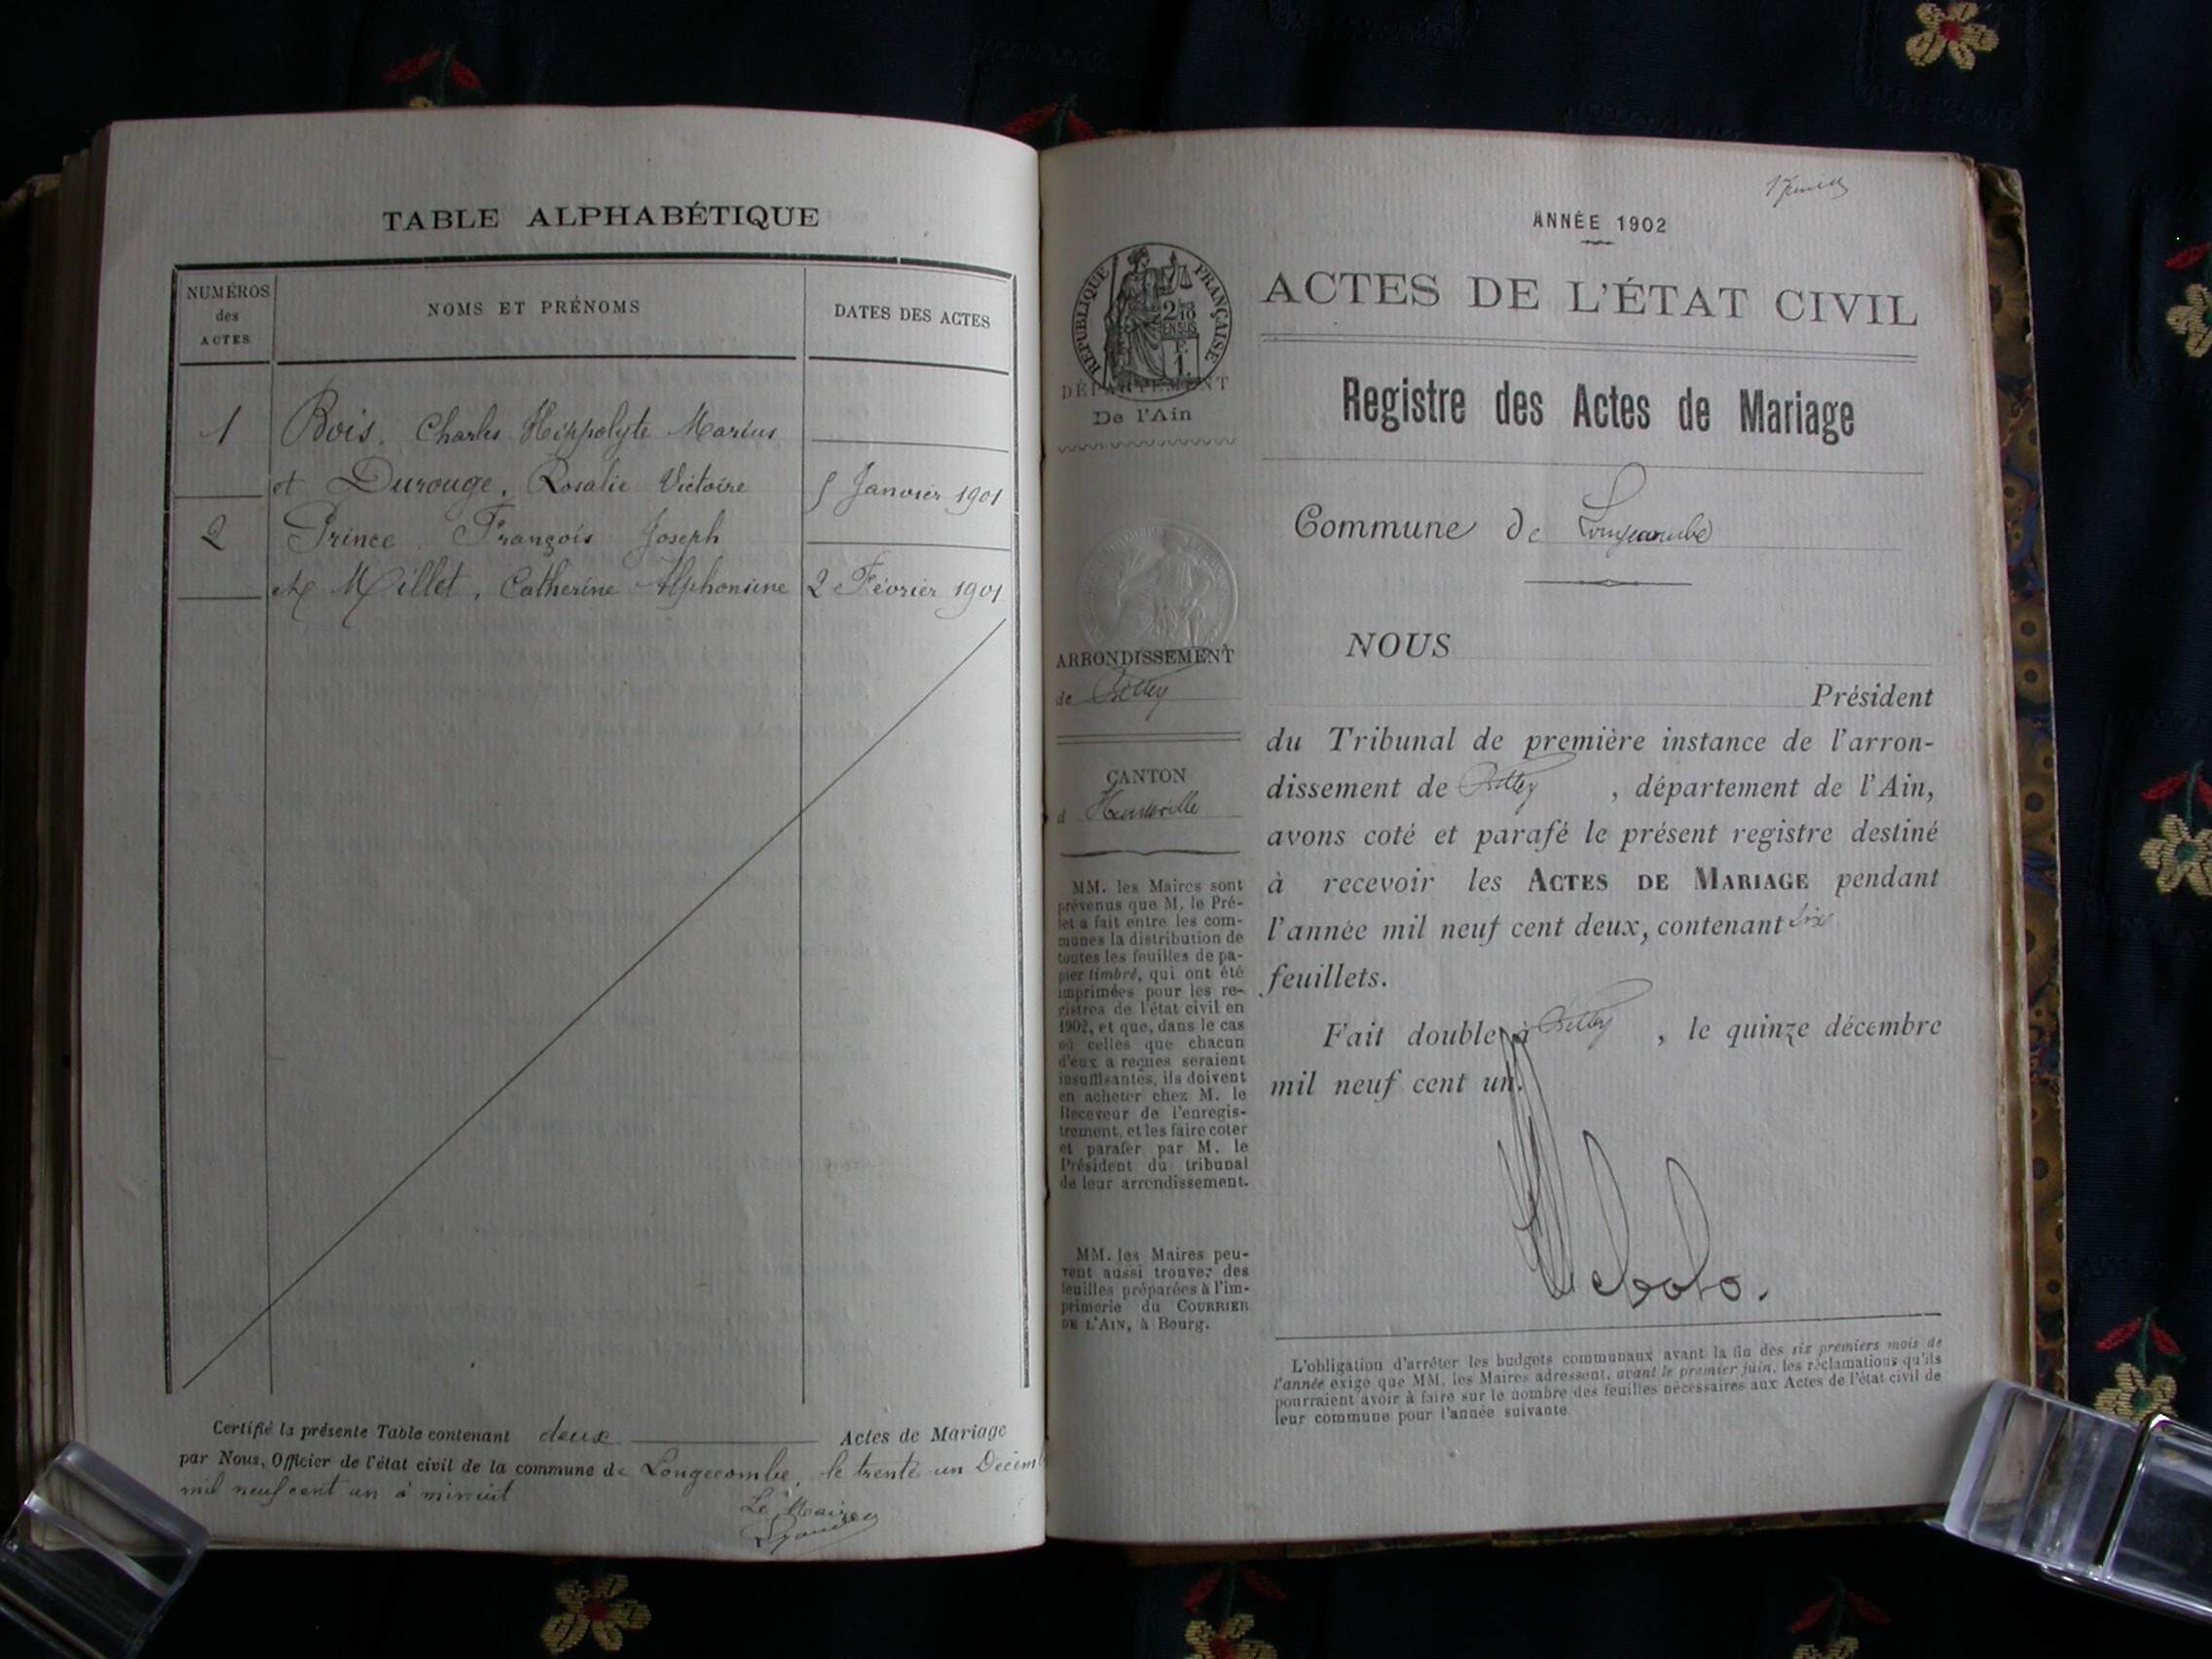 TABLE ALPHABÉTIQUE
NUMÉROS
des
ACTES
NOMS ET PRÉNOMS
DATES DES ACTES
1
Bois. Charles Hippolyte Marius
et Durouge, Rosalie Victoire
5 Janvier 1901
2
Prince. François Joseph
et Millet, Catherine Alphonsine
2 Février 1901
Certifié la présente Table contenant deux Actes de Mariage
par Nous, Officier de l'état civil de la commune de Longecombe, le trente un Décemb
mil neuf cent un à minuit
Le Maire
ANNÉE 1902
RÉPUBLIQUE FRANÇAISE
2/10
EN SUS
F.
1.
DÉPARTEMENT
De l'Ain
ARRONDISSEMENT
de Belley
CANTON
d Hauteville
MM. les Maires sont
prévenus que M. le Pré-
fet a fait entre les com-
munes la distribution de
toutes les feuilles de pa-
pier timbré, qui ont été
imprimées pour les re-
gistres de l'état civil en
1902, et que, dans le cas
où celles que chacun
d'eux a reçues seraient
insuffisantes, ils doivent
en acheter chez M. le
Receveur de l'enregis-
trement, et les faire coter
et parafer par M. le
Président du tribunal
de leur arrondissement.
MM. les Maires peu-
vent aussi trouver des
feuilles préparées à l'im-
primerie du COURRIER
DE L'AIN, à Bourg.
ACTES DE L'ÉTAT CIVIL
Registre des Actes de Mariage
Commune de Longecombe
NOUS
Président
du Tribunal de première instance de l'arron-
dissement de Belley, département de l'Ain,
avons coté et parafé le présent registre destiné
à recevoir les ACTES DE MARIAGE pendant
l'année mil neuf cent deux, contenant six
feuillets.
Fait double à Belley, le quinze décembre
mil neuf cent un.
L'obligation d'arrêter les budgets communaux avant la fin des six premiers mois de
l'année exige que MM. les Maires adressent, avant le premier juin, les réclamations qu'ils
pourraient avoir à faire sur le nombre des feuilles nécessaires aux Actes de l'état civil de
leur commune pour l'année suivante.